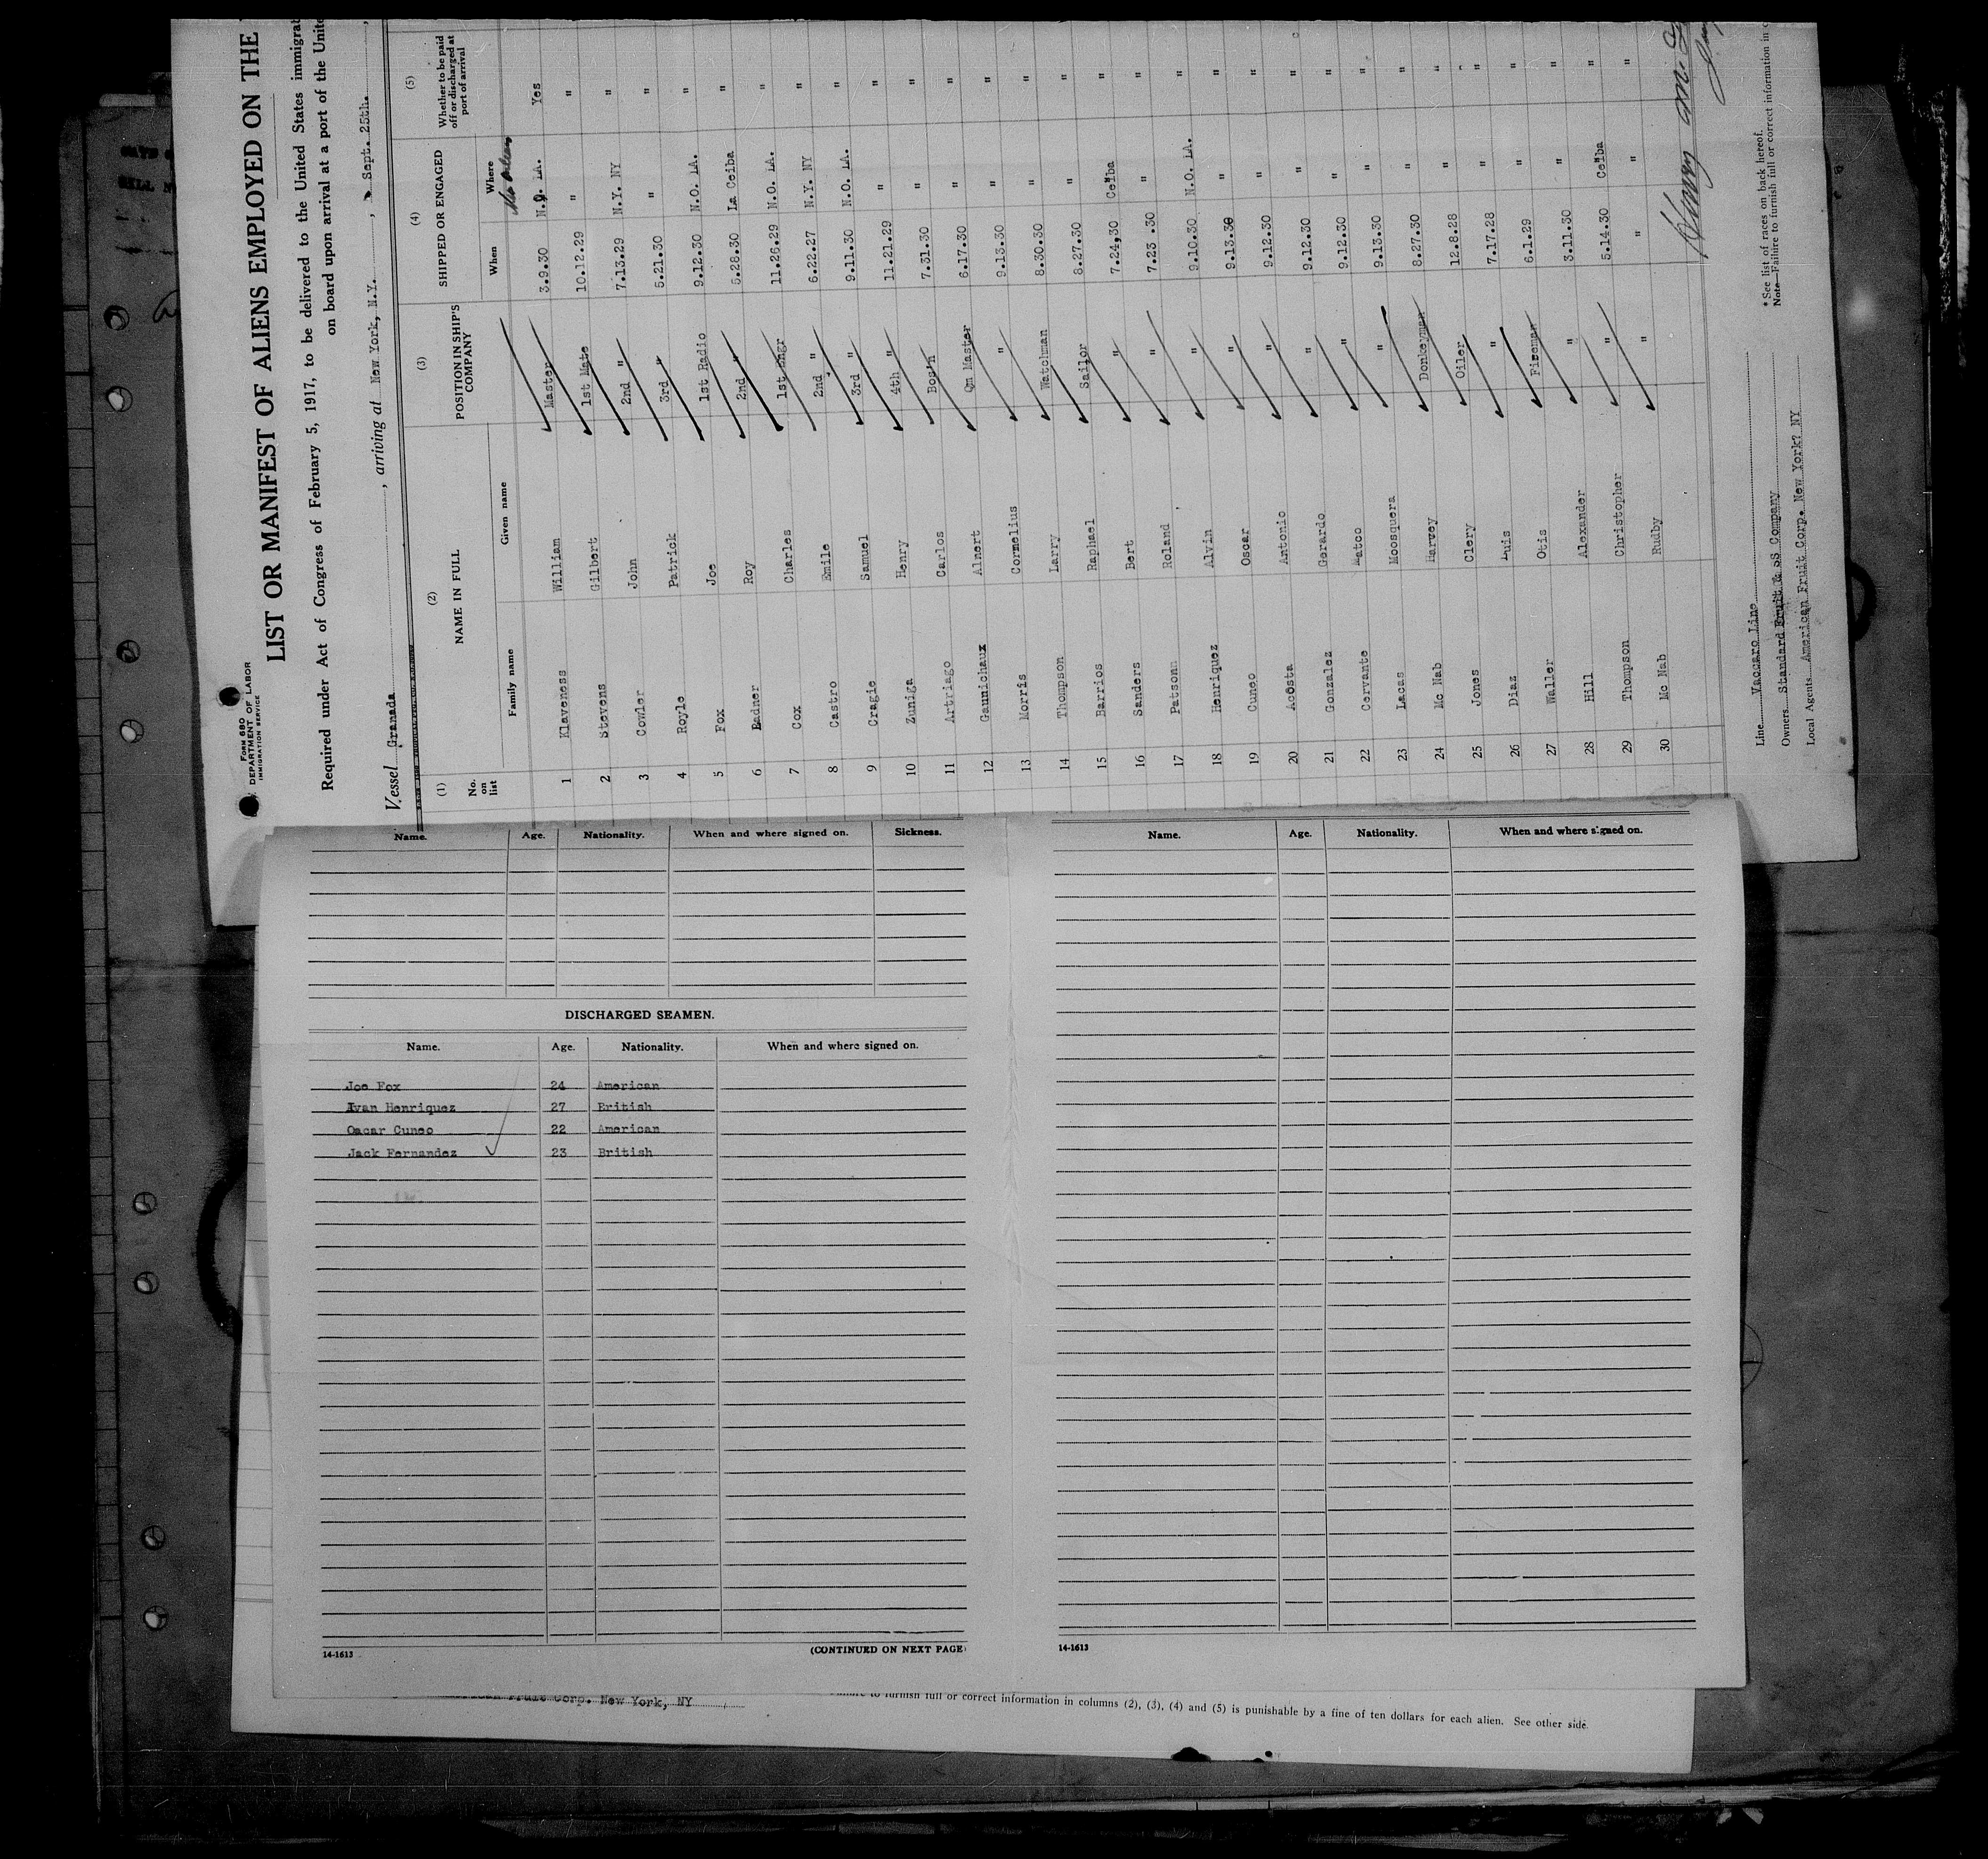 Form 680
DEPARTMENT OF LABOR
IMMIGRATION SERVICE
LIST OR MANIFEST OF ALIENS EMPLOYED ON THE
Required under Act of Congress of February 5, 1917, to be delivered to the United States immigrat
on board upon arrival at a port of the Unite
Vessel Granada, arriving at New York, N.Y., Sept. 25th.
(1) (2) (3) (4) (5)
No. on list NAME IN FULL POSITION IN SHIP'S COMPANY SHIPPED OR ENGAGED Whether to be paid off or discharged at port of arrival
Family name Given name When Where
1 Klaveness William Master 3.9.30 N.O. LA. Yes
2 Stevens Gilbert 1st Mate 10.12.29 " "
3 Cowler John 2nd " 7.13.29 N.Y. NY "
4 Royle Patrick 3rd " 5.21.30 " "
5 Fox Joe 1st Radio 9.12.30 N.O. LA. "
6 Badner Roy 2nd " 5.28.30 La Ceiba "
7 Cox Charles 1st Engr 11.26.29 N.O. LA. "
8 Castro Emile 2nd " 6.22.27 N.Y. NY "
9 Cragie Samuel 3rd " 9.11.30 N.O. LA. "
10 Zuniga Henry 4th " 11.21.29 " "
11 Artriago Carlos Bos'n 7.31.30 " "
12 Gaunichaux Alnert Qn Master 6.17.30 " "
13 Morris Cornelius " 9.13.30 " "
14 Thompson Larry Watchman 8.30.30 " "
15 Barrios Raphael Sailor 8.27.30 " "
16 Sanders Bert " 7.24,30 Ceiba "
17 Patsonn Roland " 7.23 .30 " "
18 Henriquez Alvin " 9.10.30 N.O. LA. "
19 Cuneo Oscar " 9.13.30 " "
20 Acosta Antonio " 9.12.30 " "
21 Gonzalez Gerardo " 9.12.30 " "
22 Cervante Mateo " 9.12.30 " "
23 Lacas Moosquera " 9.13.30 " "
24 Mc Nab Harvey Donkeyman 8.27.30 " "
25 Jones Clery Oiler 12.8.28 " "
26 Diaz Luis " 7.17.28 " "
27 Waller Otis Fireman 6.1.29 " "
28 Hill Alexander " 3.11.30 " "
29 Thompson Christopher " 5.14.30 Ceiba "
30 Mc Nab Rudby " " " "
Line Vaccaro Line
Owners Standard Fruit & SS Company
Local Agents American Fruit Corp. New York? NY
* See list of races on back hereof.
Note—Failure to furnish full or correct information in c
Name. Age. Nationality. When and where signed on. Sickness.
DISCHARGED SEAMEN.
Name. Age. Nationality. When and where signed on.
Joe Fox 24 American
Ivan Henriquez 27 British
Oscar Cuneo 22 American
Jack Fernandez 23 British
14-1613 (CONTINUED ON NEXT PAGE)
Name. Age. Nationality. When and where signed on.
14-1613
Fruit Corp. New York, NY
to furnish full or correct information in columns (2), (3), (4) and (5) is punishable by a fine of ten dollars for each alien. See other side.